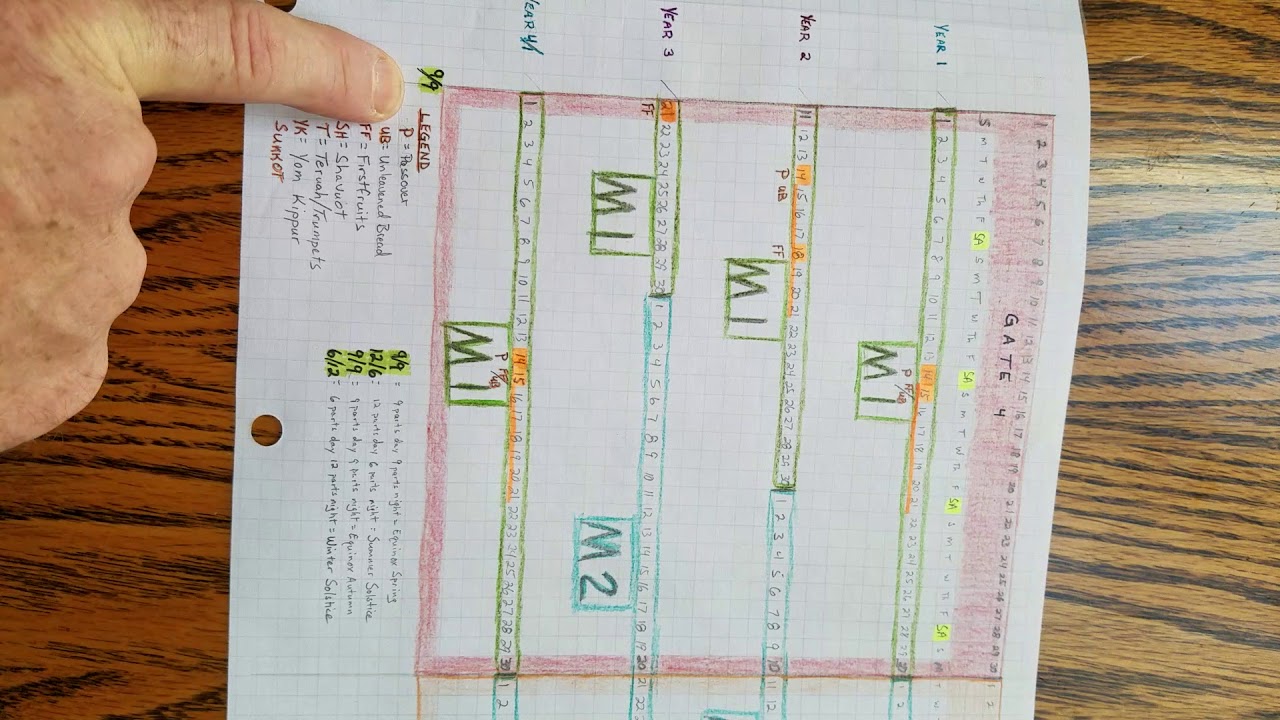 1 2 3 4 5 6 7 8 9 10 11 12 13 14 15 16 17 18 19 20 21 22 23 24 25 26 27 28 29 30 1 2
GATE 4
S M T W Th F SA S M T W Th F SA S M T W Th F SA S M T W Th F SA S M T W
YEAR 1 1 2 3 4 5 6 7 8 9 10 11 12 13 14 15 16 17 18 19 20 21 22 23 24 25 26 27 28 29 30 1 2
P FF/UB
M1
YEAR 2 11 12 13 14 15 16 17 18 19 20 21 22 23 24 25 26 27 28 29 30 1 2 3 4 5 6 7 8 9 10 11 12
P UB FF
M1
YEAR 3 21 22 23 24 25 26 27 28 29 30 1 2 3 4 5 6 7 8 9 10 11 12 13 14 15 16 17 18 19 20 21 22
FF
M1 M2
YEAR 4/1 1 2 3 4 5 6 7 8 9 10 11 12 13 14 15 16 17 18 19 20 21 22 23 24 25 26 27 28 29 30 1 2
P FF/UB
M1
9/9
LEGEND
P = Passover
UB = Unleavened Bread
FF = Firstfruits
SH = Shavuot
T = Teruah/Trumpets
YK = Yom Kippur
SUKKOT
9/9 = 9 parts day 9 parts night = Equinox Spring
12/6 = 12 parts day 6 parts night = Summer Solstice
9/9 = 9 parts day 9 parts night = Equinox Autumn
6/12 = 6 parts day 12 parts night = Winter Solstice